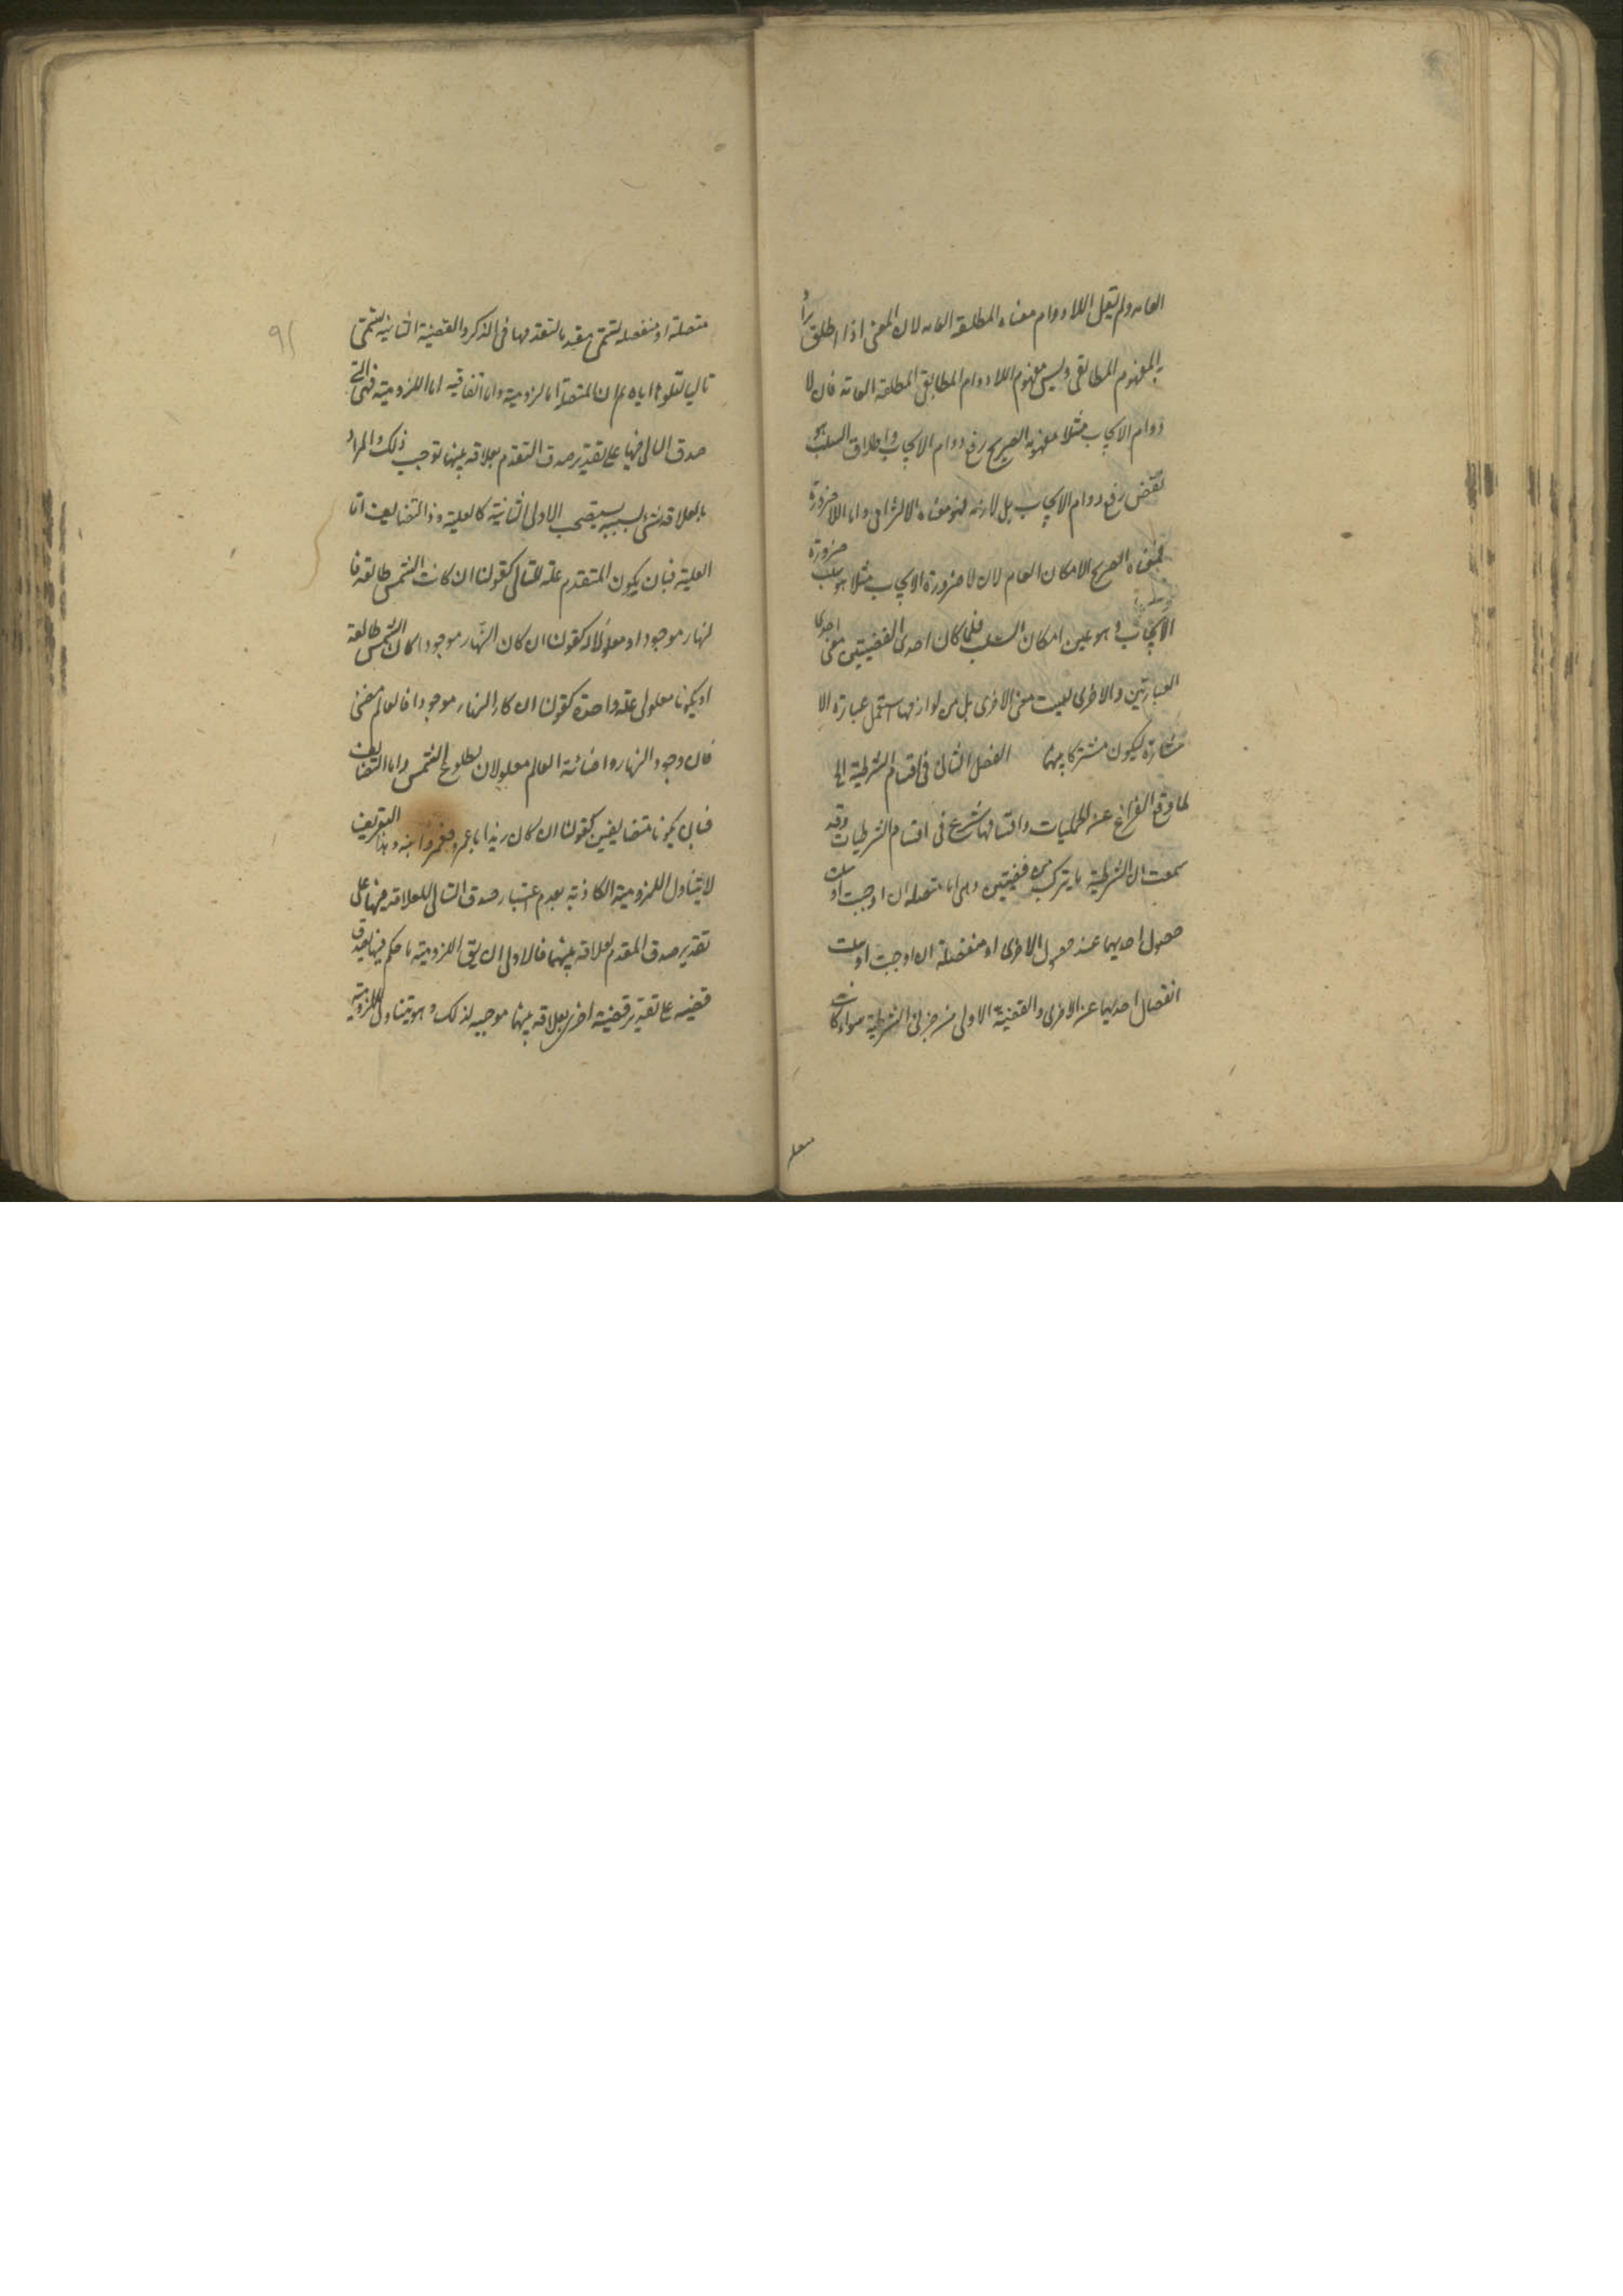 العامه ولم يقل اللادوام معناه المطلقه العامه لان المعنى اذا اطلق يراد
به المفهوم المطابقى وليس مفهوم اللادوام المطابقى المطلقه العامة فان لا
دوام الايجاب مثلا مفهومه الصريح رفع دوام الايجاب واطلاق السلب ليس هو
نقيض رفع دوام الايجاب بل لازمه فهو معناه الالتزامى واما اللاضرورة
فمعناه الصريح الامكان العام لان لا ضرورة الايجاب مثلا هو سلب ضرورة
الايجاب وهو عين امكان السلب فلما كان احدى القضيتين معنى احدى
العبارتين والاخرى ليست معنى الاخرى بل من لوازمها استعمل عبارة الا
شارة ليكون مشتركا بينهما الفصل الثانى فى اقسام الشرطية الخ
لما وقع الفراغ عن الحمليات واقسامها شرع فى اقسام الشرطيات وقد
سمعت ان الشرطية ما يتركب من قضيتين وهى اما متصله ان اوجبت او سلبت
حصول احديهما عند حصول الاخرى او منفصلة ان اوجبت او سلبت
انفصال احديهما عن الاخرى والقضية الاولى من جزئى الشرطية سواء كانت
متصلة
متصلة او منفصله تسمى مقدما لتقدمها فى الذكر والقضية الثانيه تسمى
تاليا لتلوها اياه ثم ان المتصلة اما لزومية واما اتفاقيه اما اللزومية فهى التى
صدق التالى فيها على تقدير صدق المتقدم بعلاقه بينهما توجب ذلك والمراد
بالعلاقه شئ بسببه يستصحب الاولى الثانية كالعلية والتضايف اما
العلية فبان يكون المتقدم علة للتالى كقولنا ان كانت الشمس طالعة فا
لنهار موجود او معلولا له كقولنا ان كان النهار موجودا كان الشمس طالعة
او يكونا معلولى علة واحدة كقولنا ان كان النهار موجودا فالعالم مضئ
فان وجود النهار واضائة العالم معلولان لطلوع الشمس واما التضايف
فبان يكونا متضايفين كقولنا ان كان زيد ابا عمرو فعمرو ابنه وهذا التعريف
لا يتناول اللزومية الكاذبة بعدم اعتبار صدق التالى للعلاقه فيها على
تقدير صدق المقدم لعلاقه بينهما فالاولى ان يق اللزوميه ما حكم فيها بصدق
قضيه على تقدير قضية اخرى بعلاقه بينهما موجبه لذلك وهو يتناول اللزومية